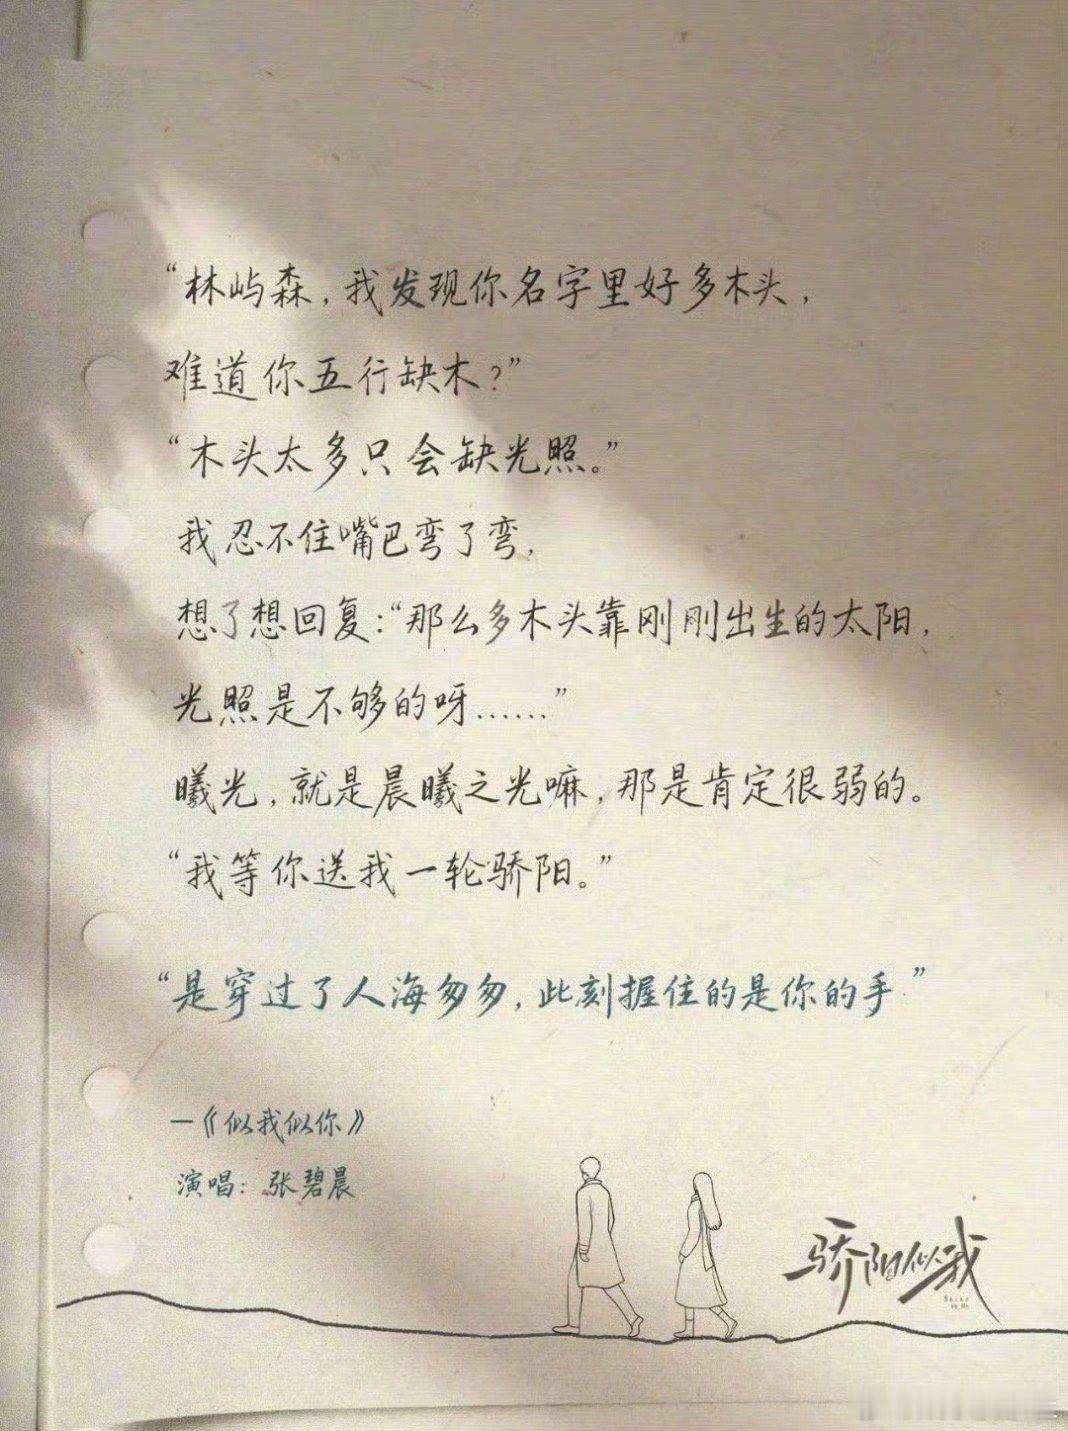 “林屿森，我发现你名字里好多木头，
难道你五行缺木？”
“木头太多只会缺光照。”
我忍不住嘴巴弯了弯，
想了想回复：“那么多木头靠刚刚出生的太阳，
光照是不够的呀……”
曦光，就是晨曦之光嘛，那是肯定很弱的。
“我等你送我一轮骄阳。”
“是穿过了人海匆匆，此刻握住的是你的手”
—《似我似你》
演唱：张碧晨
骄阳似我